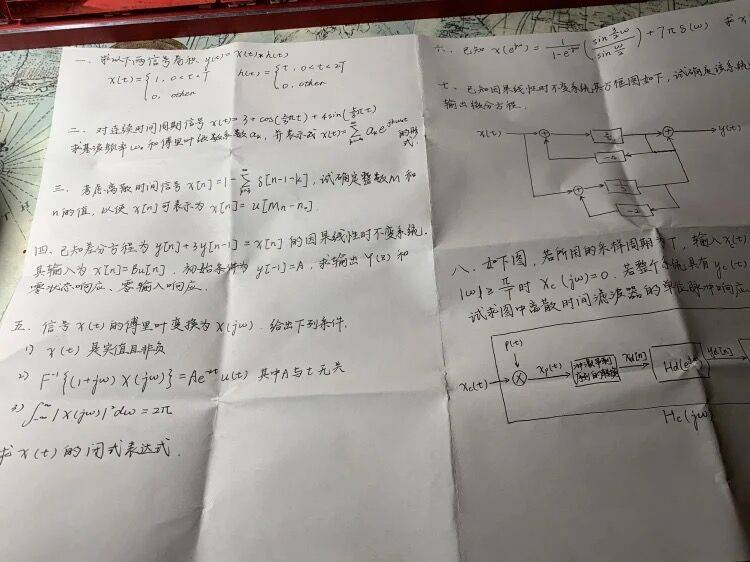 一、求以下两信号卷积 y(t)=x(t)*h(t)
x(t)={1, 0<t<T
0, other
h(t)={t, 0<t<2T
0, other
二、对连续时间周期信号 x(t)=3+cos(π t)+4sin(π t)
求基波频率ω₀和傅里叶级数系数aₖ,并表示成x(t)=∑aₖe^{jkω₀t}的形式.
三、考虑离散时间信号 x[n]=1-∑δ[n-1-k],试确定整数M和
n的值,以使x[n]可表示为x[n]=u[Mn-n₀].
四、已知差分方程为y[n]+3y[n-1]=x[n]的因果线性时不变系统.
其输入为x[n]=Bu[n],初始条件为y[-1]=A,求输出Y(z)和
零状态响应、零输入响应.
五、信号x(t)的傅里叶变换为X(jω).给出下列条件.
1) x(t)是实值且非负
2) F⁻¹{(1+jω)X(jω)}=Ae^{-2t}u(t) 其中A与t无关
3) ∫_{-∞}^{∞}|X(jω)|²dω=2π
求x(t)的闭式表达式.
六、已知 X(e^{jω})=1/(1-e^{-jω})(sin(3/2)ω/sin(ω/2))+7πδ(ω) 求x
七、已知因果线性时不变系统其方框图如下,试确定该系统
输出微分方程.
x(t)
+
+
y(t)
-4
+
-2
八、如下图,若所用的采样周期为T,输入x(t)
|ω|≥π/T时Xc(jω)=0.若整个系统具有yc(t)
试求图中离散时间滤波器的单位脉冲响应.
p(t)
xc(t)
×
xp(t)
冲激串到序列的转换
xd[n]
Hd(e^{jω})
yd[n]
Hc(jω)